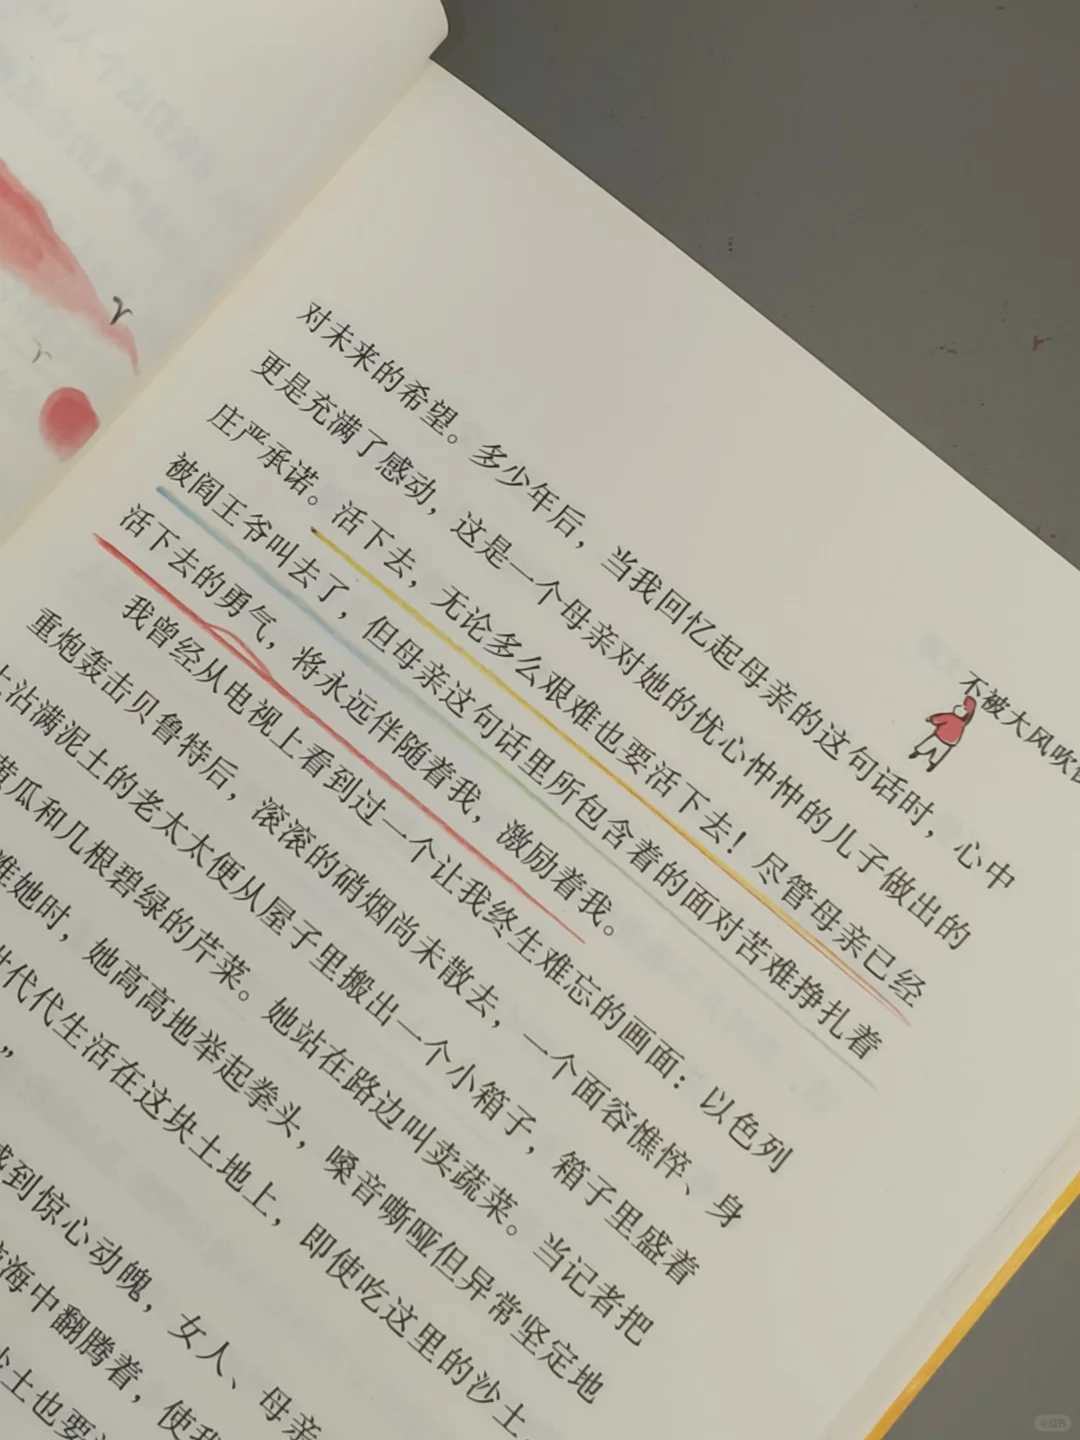 不被大风吹
对未来的希望。多少年后，当我回忆起母亲的这句话时，心中
更是充满了感动，这是一个母亲对她的忧心忡忡的儿子做出的
庄严承诺。活下去，无论多么艰难也要活下去！尽管母亲已经
被阎王爷叫去了，但母亲这句话里所包含着的面对苦难挣扎着
活下去的勇气，将永远伴随着我，激励着我。
我曾经从电视上看到过一个让我终生难忘的画面：以色列
重炮轰击贝鲁特后，滚滚的硝烟尚未散去，一个面容憔悴、身
上沾满泥土的老太太便从屋子里搬出一个小箱子，箱子里盛着
黄瓜和几根碧绿的芹菜。她站在路边叫卖蔬菜。当记者把
准她时，她高高地举起拳头，嗓音嘶哑但异常坚定地
世代代生活在这块土地上，即使吃这里的沙土
”
感到惊心动魄，女人、母亲
海中翻腾着，使我
沙土也要
小红书